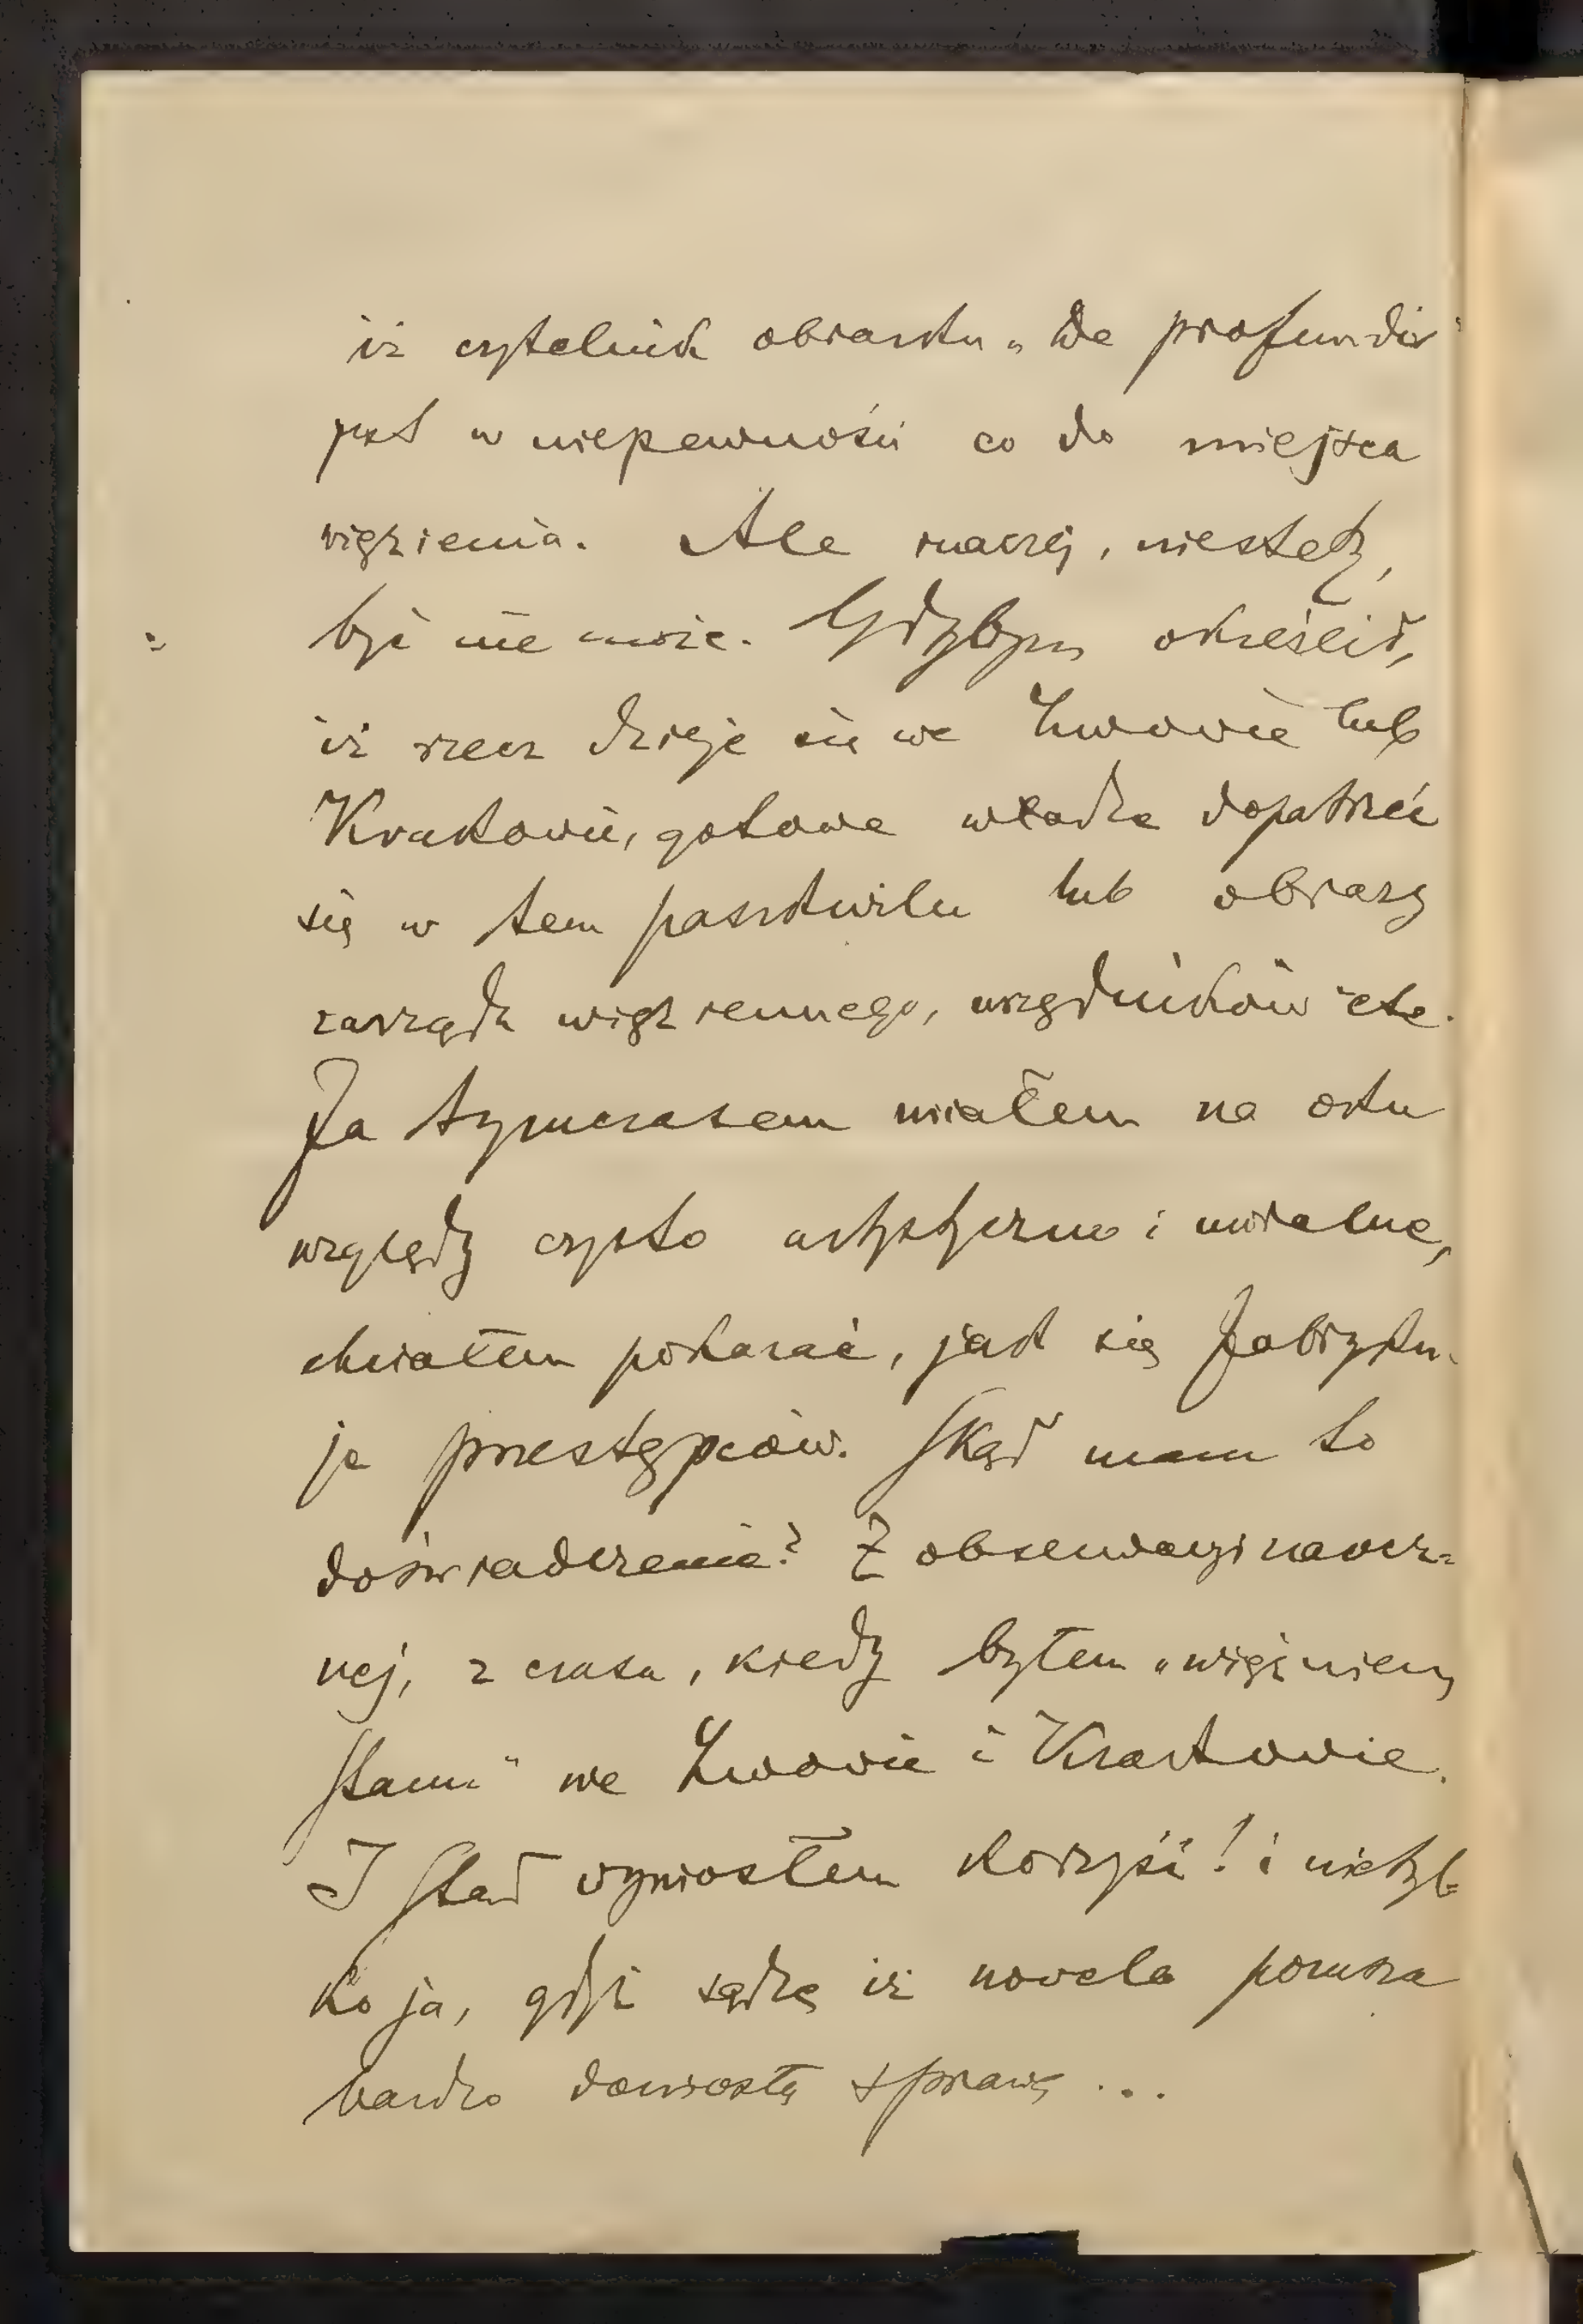 iż czytelnik obrazku „De profundis"
jest w niepewności co do miejsca
więzienia. Ale inaczej, niestety,
być nie może. Gdybym określił,
iż rzecz dzieje się we Lwowie lub
Krakowie, gotowe władze dopatrzeć
się w tem paszkwilu lub obrazy
zarządu więziennego, urzędników etc.
Ja tymczasem miałem na oku
względy czysto artystyczne i moralne,
chciałem pokazać, jak się fabryku-
je przestępców. Skąd mam to
doświadczenie? Z obserwacyi naocz-
nej, z czasu, kiedy byłem „więźniem
stanu" we Lwowie i Krakowie.
I stąd wyniosłem korzyść! i nietyl-
ko ja, gdyż sądzę iż nowela porusza
bardzo doniosłą sprawę ...